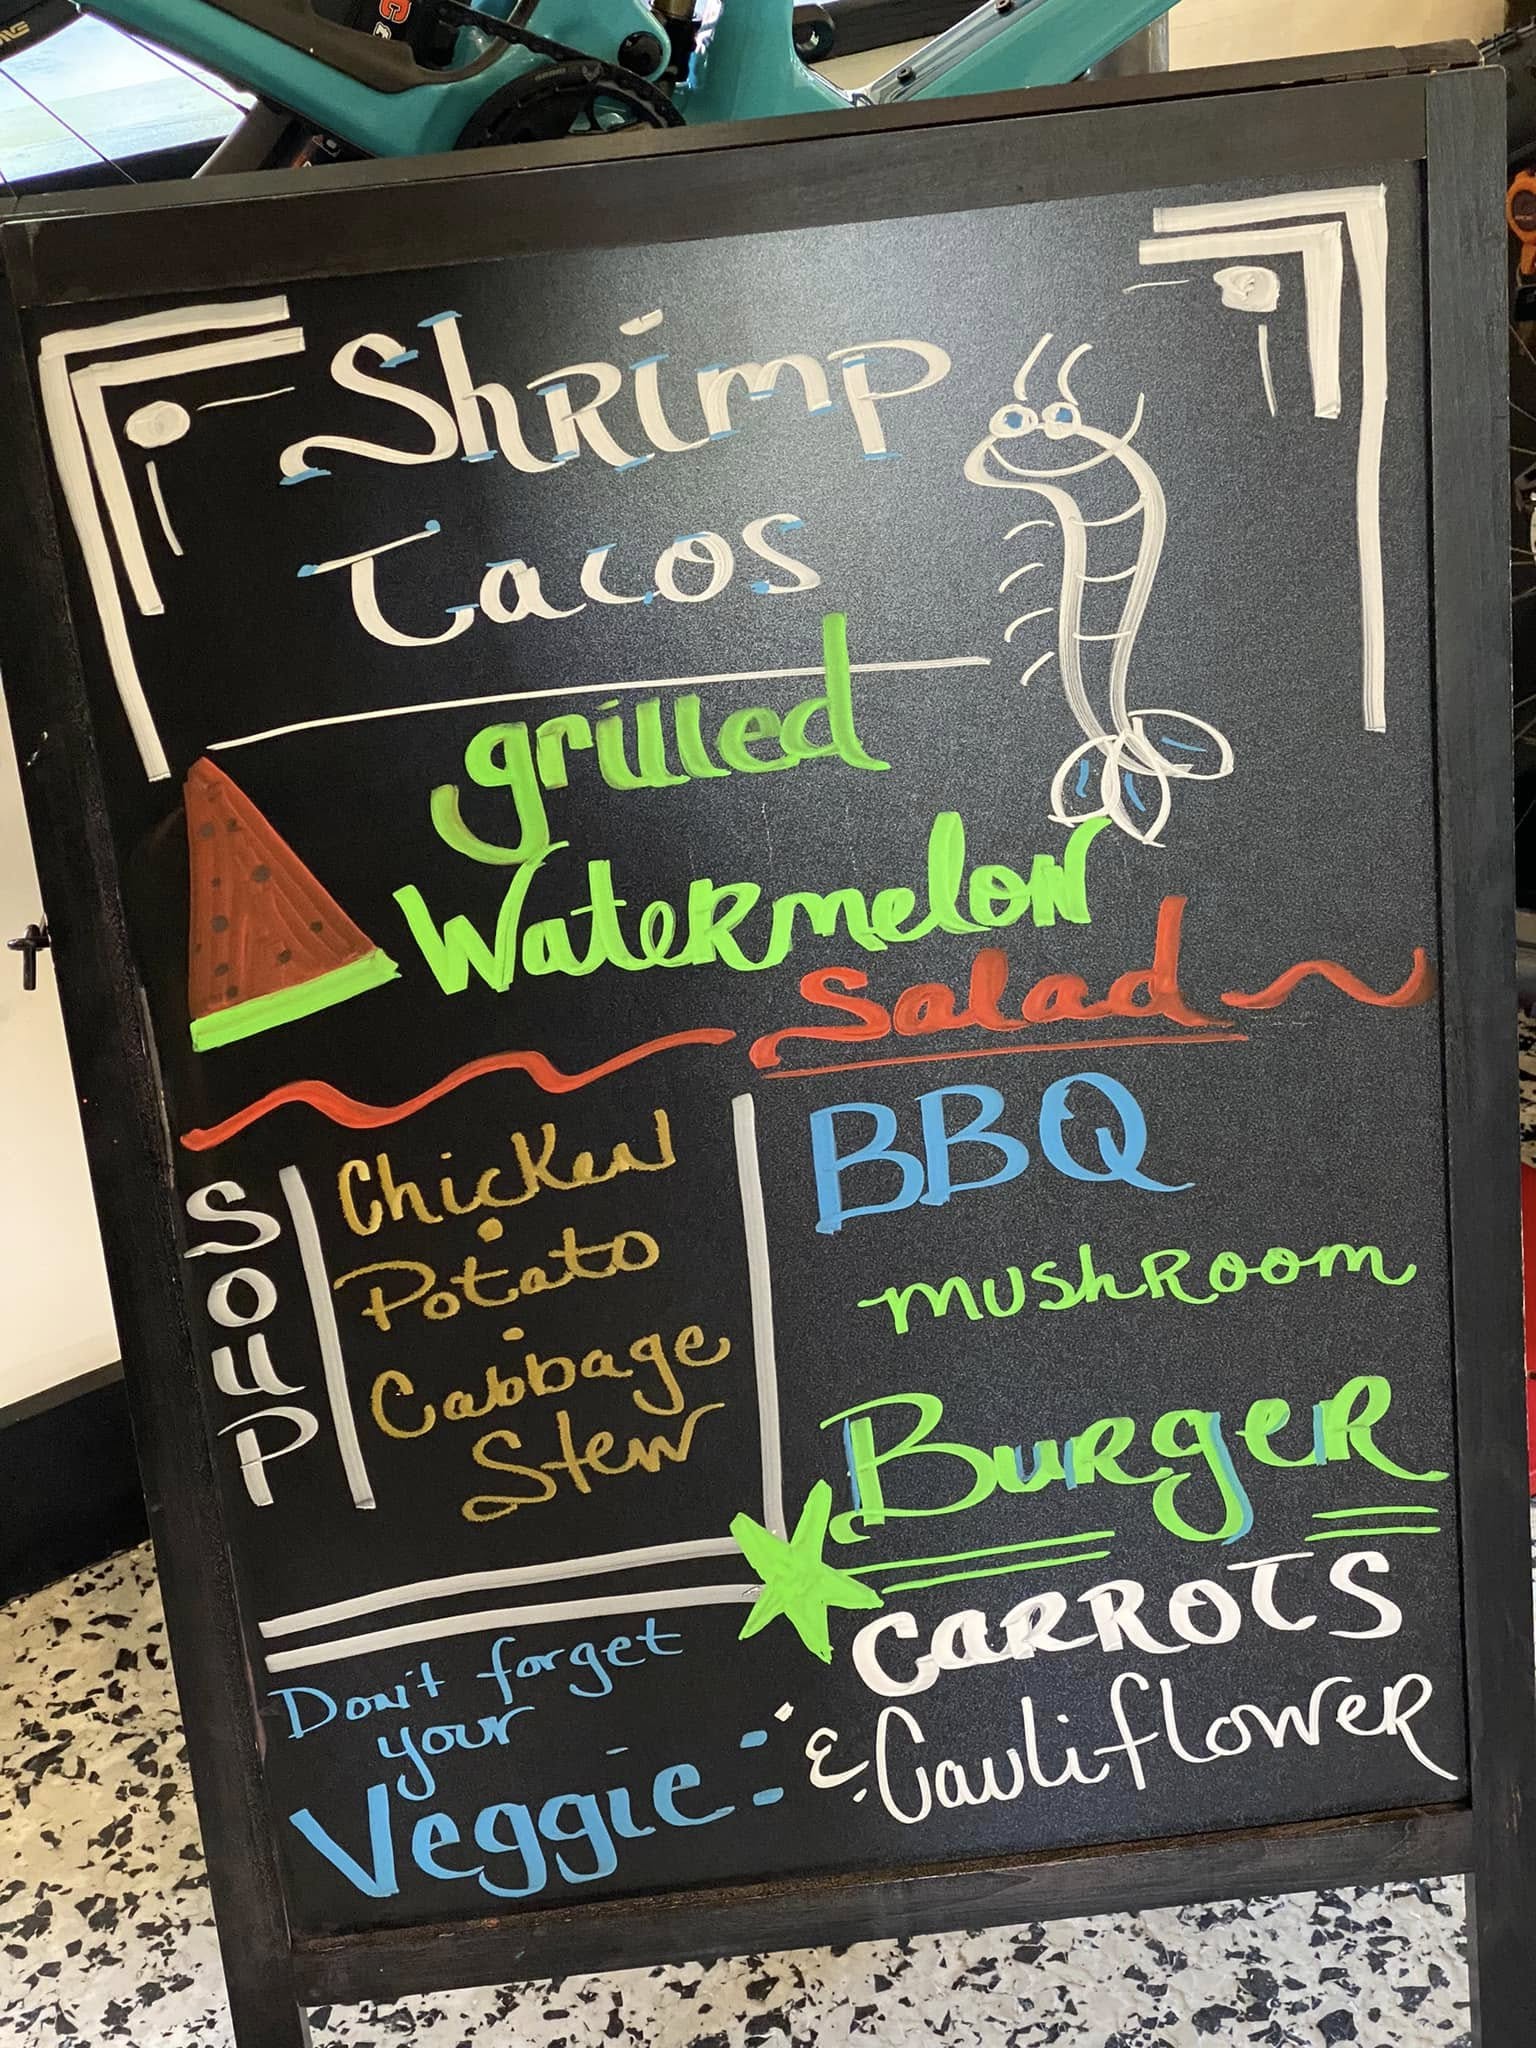 Shrimp
Tacos
grilled
Watermelon
Salad
SOUP
Chicken
Potato
Cabbage
Stew
BBQ
mushroom
Burger
Don't forget
your
Veggie:
CARROTS
& Cauliflower